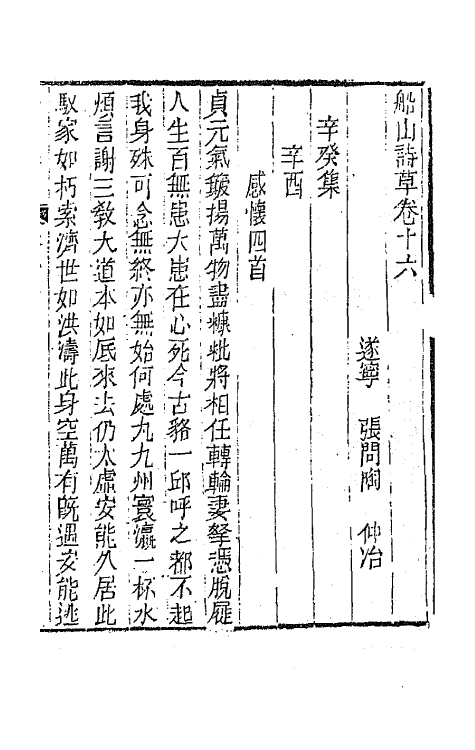 船山詩草卷十六
遂寧　張問陶　仲冶
辛癸集
辛酉
感懷四首
貞元氣簸揚萬物盡糠粃將相任轉輪妻孥憑脫屣
人生百無患大患在心死今古貉一邱呼之都不起
我身殊可念無終亦無始何處九九州寰瀛一杯水
煩言謝三教大道本如底來去仍太虛安能久居此
馭家如朽索濟世如洪濤此身空萬有既遇安能逃